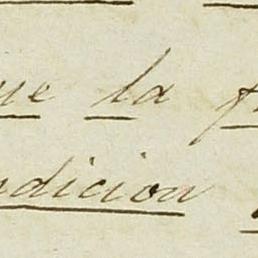 ue la f
ndicion